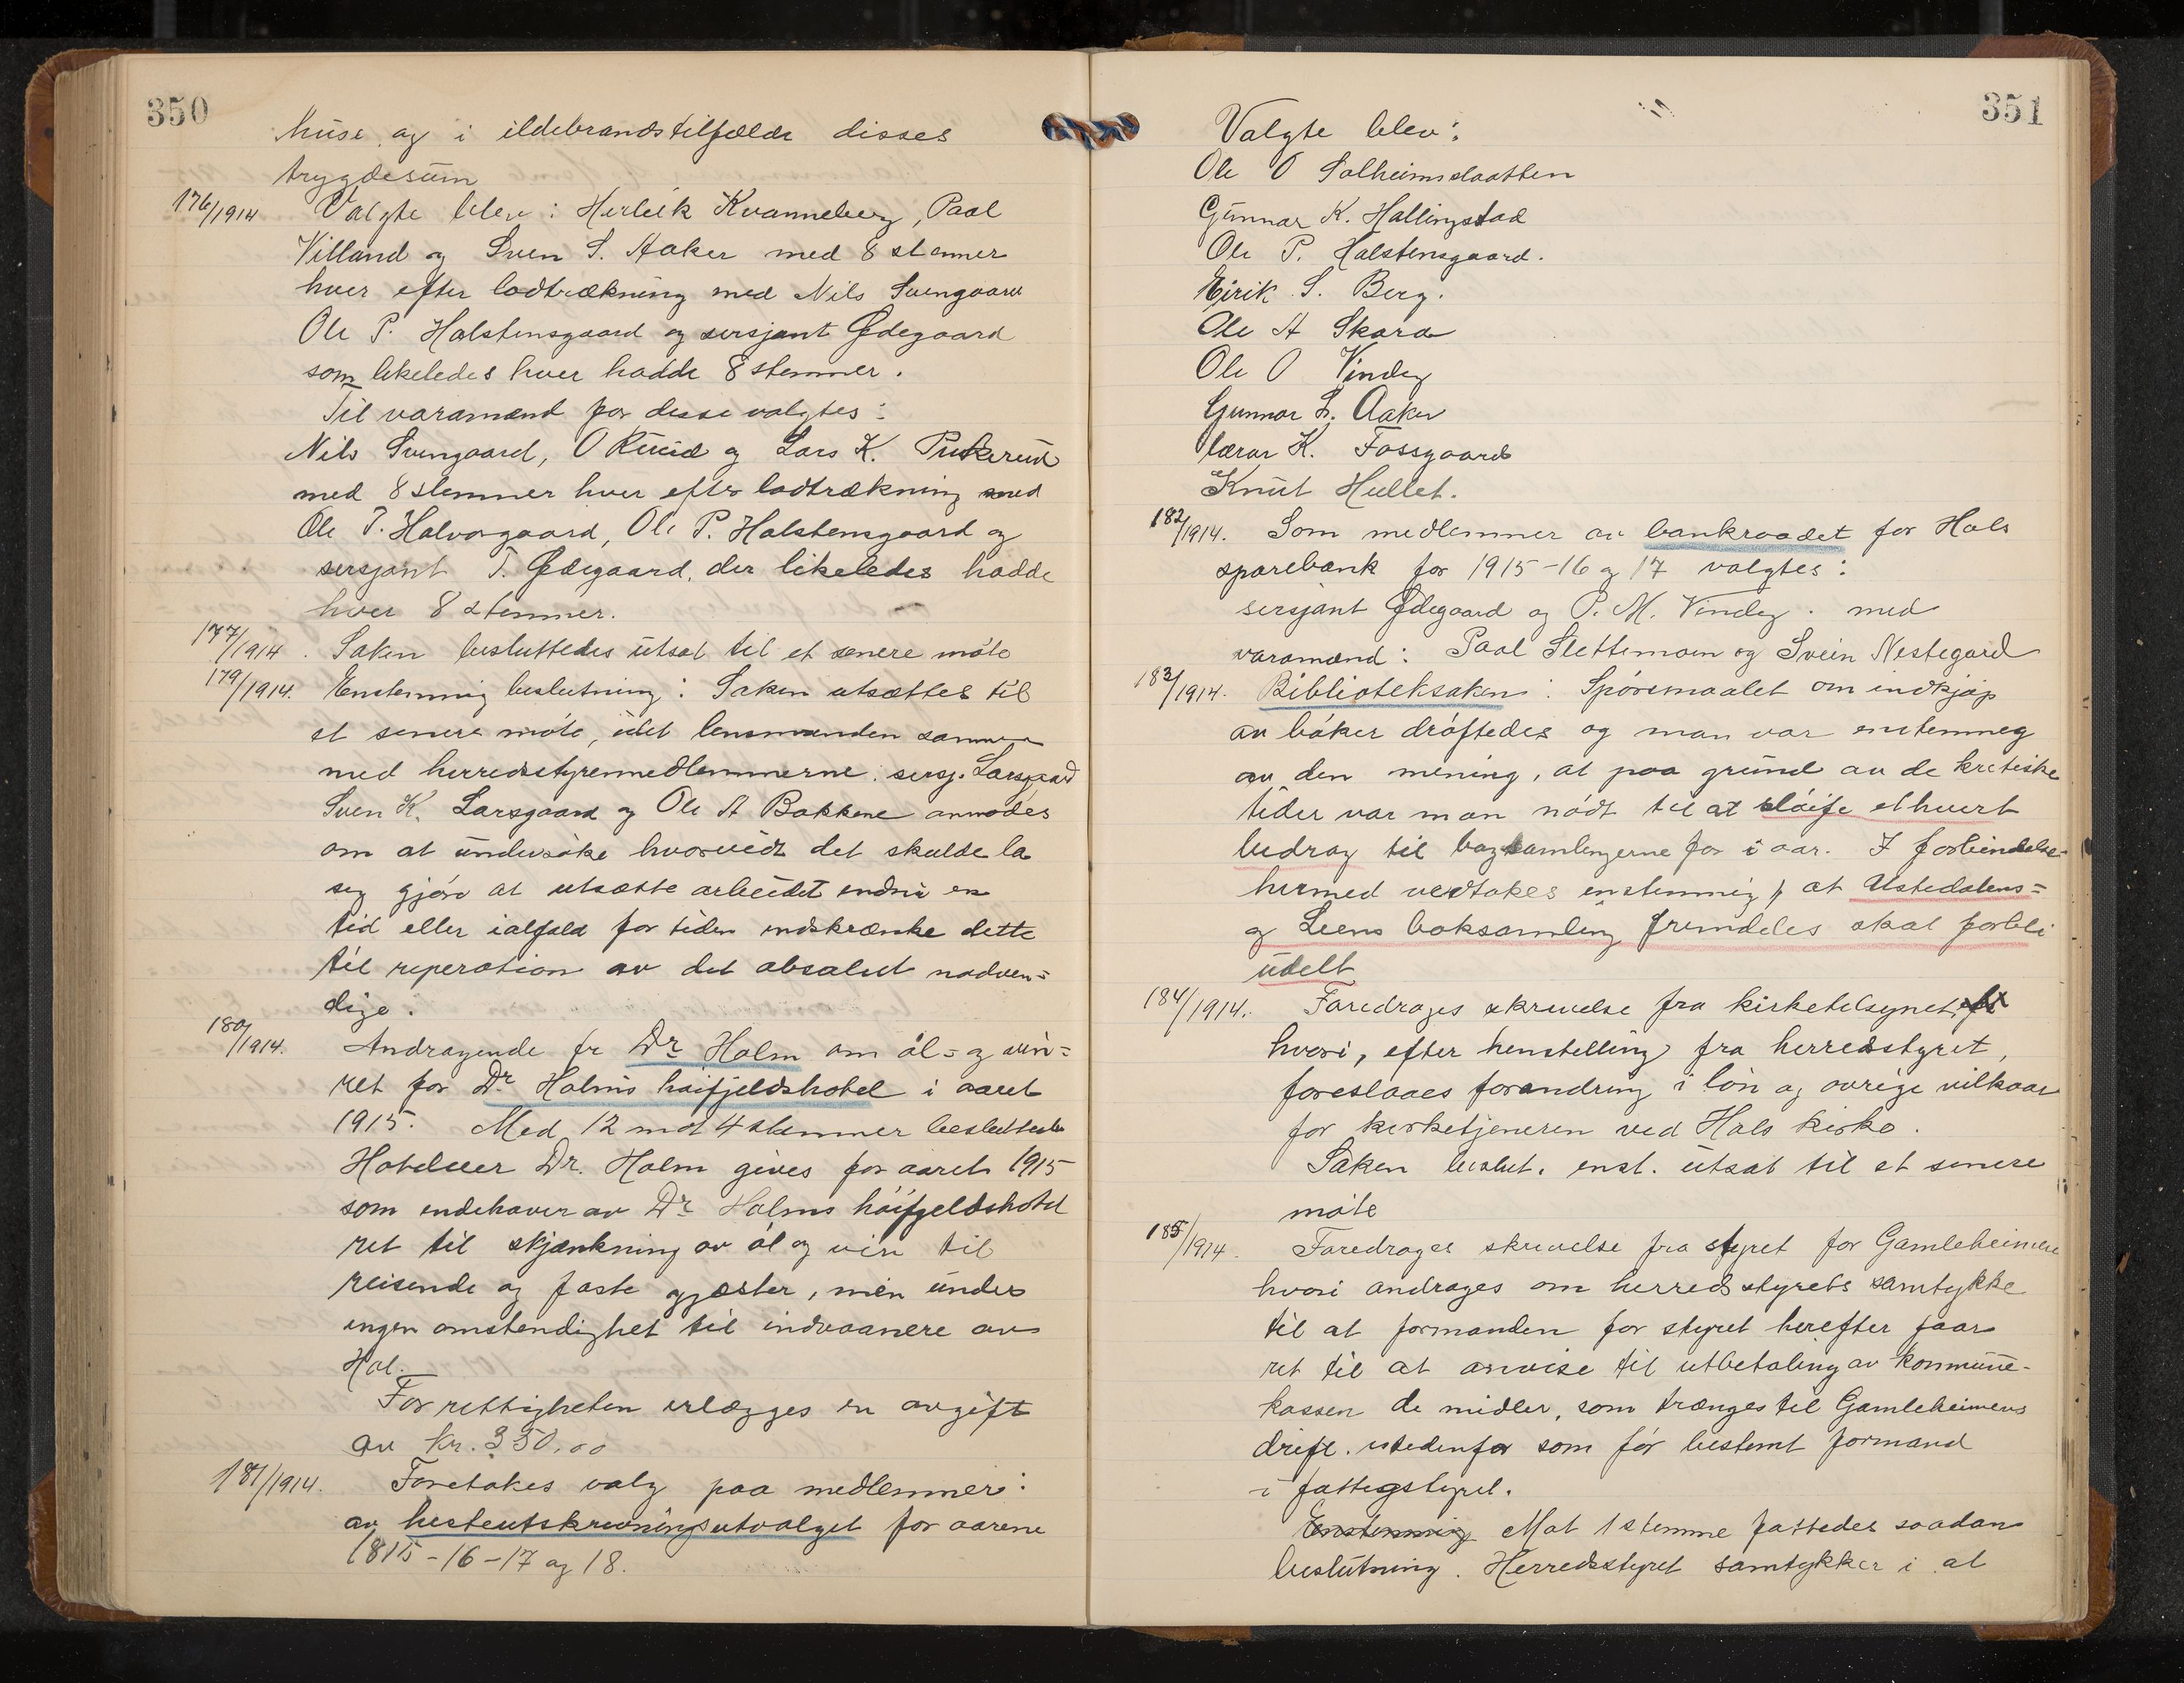 350
huse og i ildebrandstilfælde disses
trygdesum
176/1914 Valgte blev: Herleik Kvanneberg, Paal
Villand og Sven S. Aaker med 8 stemmer
hver efter lodtrækning med Nils Svengaard
Ole P. Halstensgaard og sersjant Ødegaard
som likeledes hver hadde 8 stemmer.
Til varamænd for disse valgtes:
Nils Svengaard, O Ruud og Lars K. Pukerud
med 8 stemmer hver efter lodtrækning med
Ole T. Halvorgaard, Ole P. Halstensgaard og
sersjant T. Ødegaard, der likeledes hadde
hver 8 stemmer.
177/1914. Saken besluttedes utsat til et senere møte
179/1914. Enstemmig beslutning: Saken utsættes til
et senere møte, idet lensmanden sammen
med herredsstyremedlemmerne: sersj. Larsgaard
Sven K. Larsgaard og Ole A Bakkene anmodes
om at undersøke hvorvidt det skulde la
sig gjøre at utsætte arbeidet endnu en
tid eller ialfald for tiden indskrænke dette
til reperation av det absolut nødven=
dige.
180/1914. Andragende fr Dr Holm om øl= og vin=
ret for Dr Holms høifjeldshotel i aaret
1915. Med 12 mot 4 stemmer besluttedes
Hoteleier Dr. Holm gives for aaret 1915
som indehaver av Dr Holms høifjeldshotel
ret til skjænkning av øl og vin til
reisende og faste gjæster, men under
ingen omstendighet til indvaanere av
Hol.
For rettigheten erlægges en avgift
av kr. 350,00
181/1914. Foretokes valg paa medlemmer:
av hesteutskrivningsutvalget for aarene
1815-16-17 og 18.
351
Valgte blev:
Ole O Solheimslaatten
Gunnar K. Hallingstad
Ole P. Halstensgaard.
Eirik S. Berg.
Ole A Skara
Ole O Vindeg
Gunnar L. Aaker
lærar K. Fossgaard
Knut Hullet.
182/1914. Som medlemmer av bankraadet for Hols
sparebank for 1915-16 og 17 valgtes:
sersjant Ødegaard og P. M. Vindeg. med
varamænd: Paal Slettemoen og Svein Nestegard
183/1914. Biblioteksaken: Spørsmaalet om indkjøp
av bøker drøftedes og man var enstemmeg
av den mening, at paa grund av de kritiske
tider var man nødt til at sløife ethvert
bidrag til bogsamlingerne for i aar. I forbindelse
hermed vedtokes enstemmig, at Ustedalens=
og Leens boksamling fremdeles skal forbli
udelt
184/1914. Foredrages skrivelse fra kirketilsynet,
hvori, efter henstelling fra herredsstyret,
foreslaaes forandring i løn og øvrige vilkaar
for kirketjeneren ved Hols kirke.
Saken beslut. enst. utsat til et senere
møte
185/1914. Foredrages skrivelse fra styret for Gamleheimen
hvori andrages om herredsstyrets samtykke
til at formanden for styret herefter faar
ret til at anvise til utbetaling av kommune-
kassen de midler, som trænges til Gamleheimens
drift. istedenfor som før bestemt formand
i fattigstyret.
Enstemmig Mot 1 stemme fattedes saadan
beslutning. Herredsstyret samtykker i at